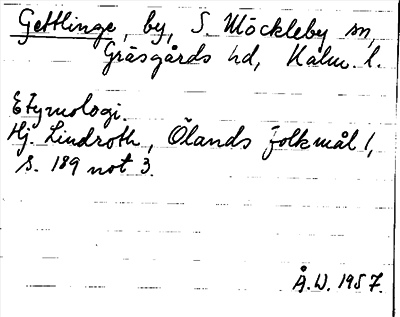 Gettlinge, by, S. Möckleby sn,
Gräsgårds hd, Kalm. l.
Etymologi.
Hj. Lindroth, Ölands folkmål 1,
s. 189 not 3.
Å.W. 1957.